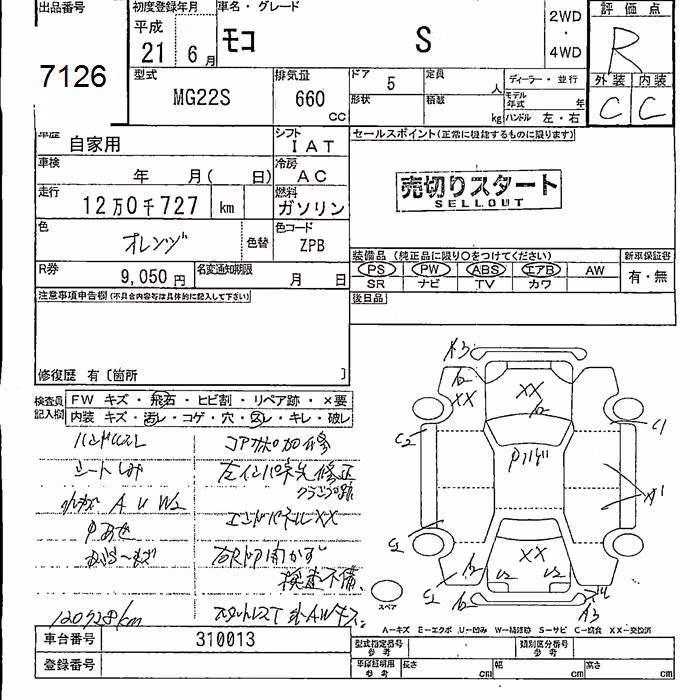 出品番号
7126
初度登録年月
平成
21 6月
車名・グレード
モコ S
2WD
・
4WD
評価点
R
外装 内装
C C
型式
MG22S
排気量
660
CC
ドア 5
定員 人
形状
積載 kg
ディーラー・並行
モデル年式 年
ハンドル 左・右
車歴 自家用
シフト
IAT
車検 年 月( 日)
冷房
AC
走行
12万0千727 km
燃料
ガソリン
色
オレンジ
色替
色コード
ZPB
R券 9,050円
名変通知期限 月 日
セールスポイント(正常に機能するものに限ります)
売切りスタート
SELLOUT
装備品 (純正品に限り○をつけてください)
PS PW ABS エアB AW
SR ナビ TV カワ
新車保証書
有・無
後日品
注意事項申告欄(不具合内容等は具体的に記入して下さい)
修復歴 有[箇所 ]
検査員
記入欄
FW キズ・飛石・ヒビ割・リペア跡・×要
内装 キズ・汚レ・コゲ・穴・スレ・キレ・破レ
ハンドルスレ
シートしみ
A U W2
コアサポ加修
左インパネ先修正
クランプ跡
エンドパネルXX
検査不備
120728km
スタットレスT
A3
A2
XX
XX
A2
C2
C1
Pハゲ
A1
C1
XX
A2
U2
U2
C1
A2
A3
スペア
A-キズ E-エクボ U-凹み W-補修跡 S-サビ C-腐食 XX-交換済
車台番号 310013
登録番号
型式指定番号
参考
類別区分番号
参考
車庫証明用
参考
長さ cm
幅 cm
高さ cm